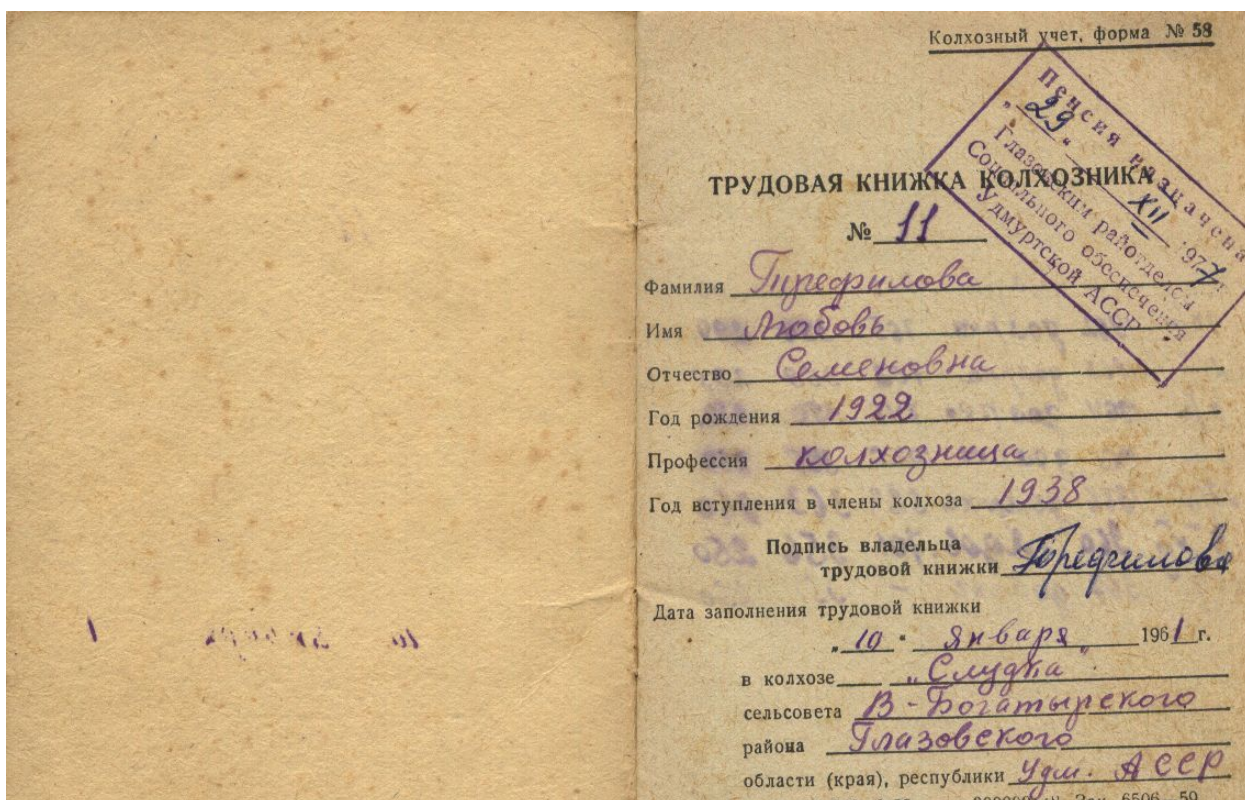 Колхозный учет, форма № 58
Пенсия назначена
"29" XII 1977 г.
Глазовским райотделом
Социального обеспечения
Удмуртской АССР
ТРУДОВАЯ КНИЖКА КОЛХОЗНИКА
№ 11
Фамилия Трефилова
Имя Любовь
Отчество Семеновна
Год рождения 1922
Профессия колхозница
Год вступления в члены колхоза 1938
Подпись владельца
трудовой книжки Трефилова
Дата заполнения трудовой книжки
"10" Января 1961 г.
в колхозе "Слудка"
сельсовета В-Богатырского
района Глазовского
области (края), республики Удм. АССР